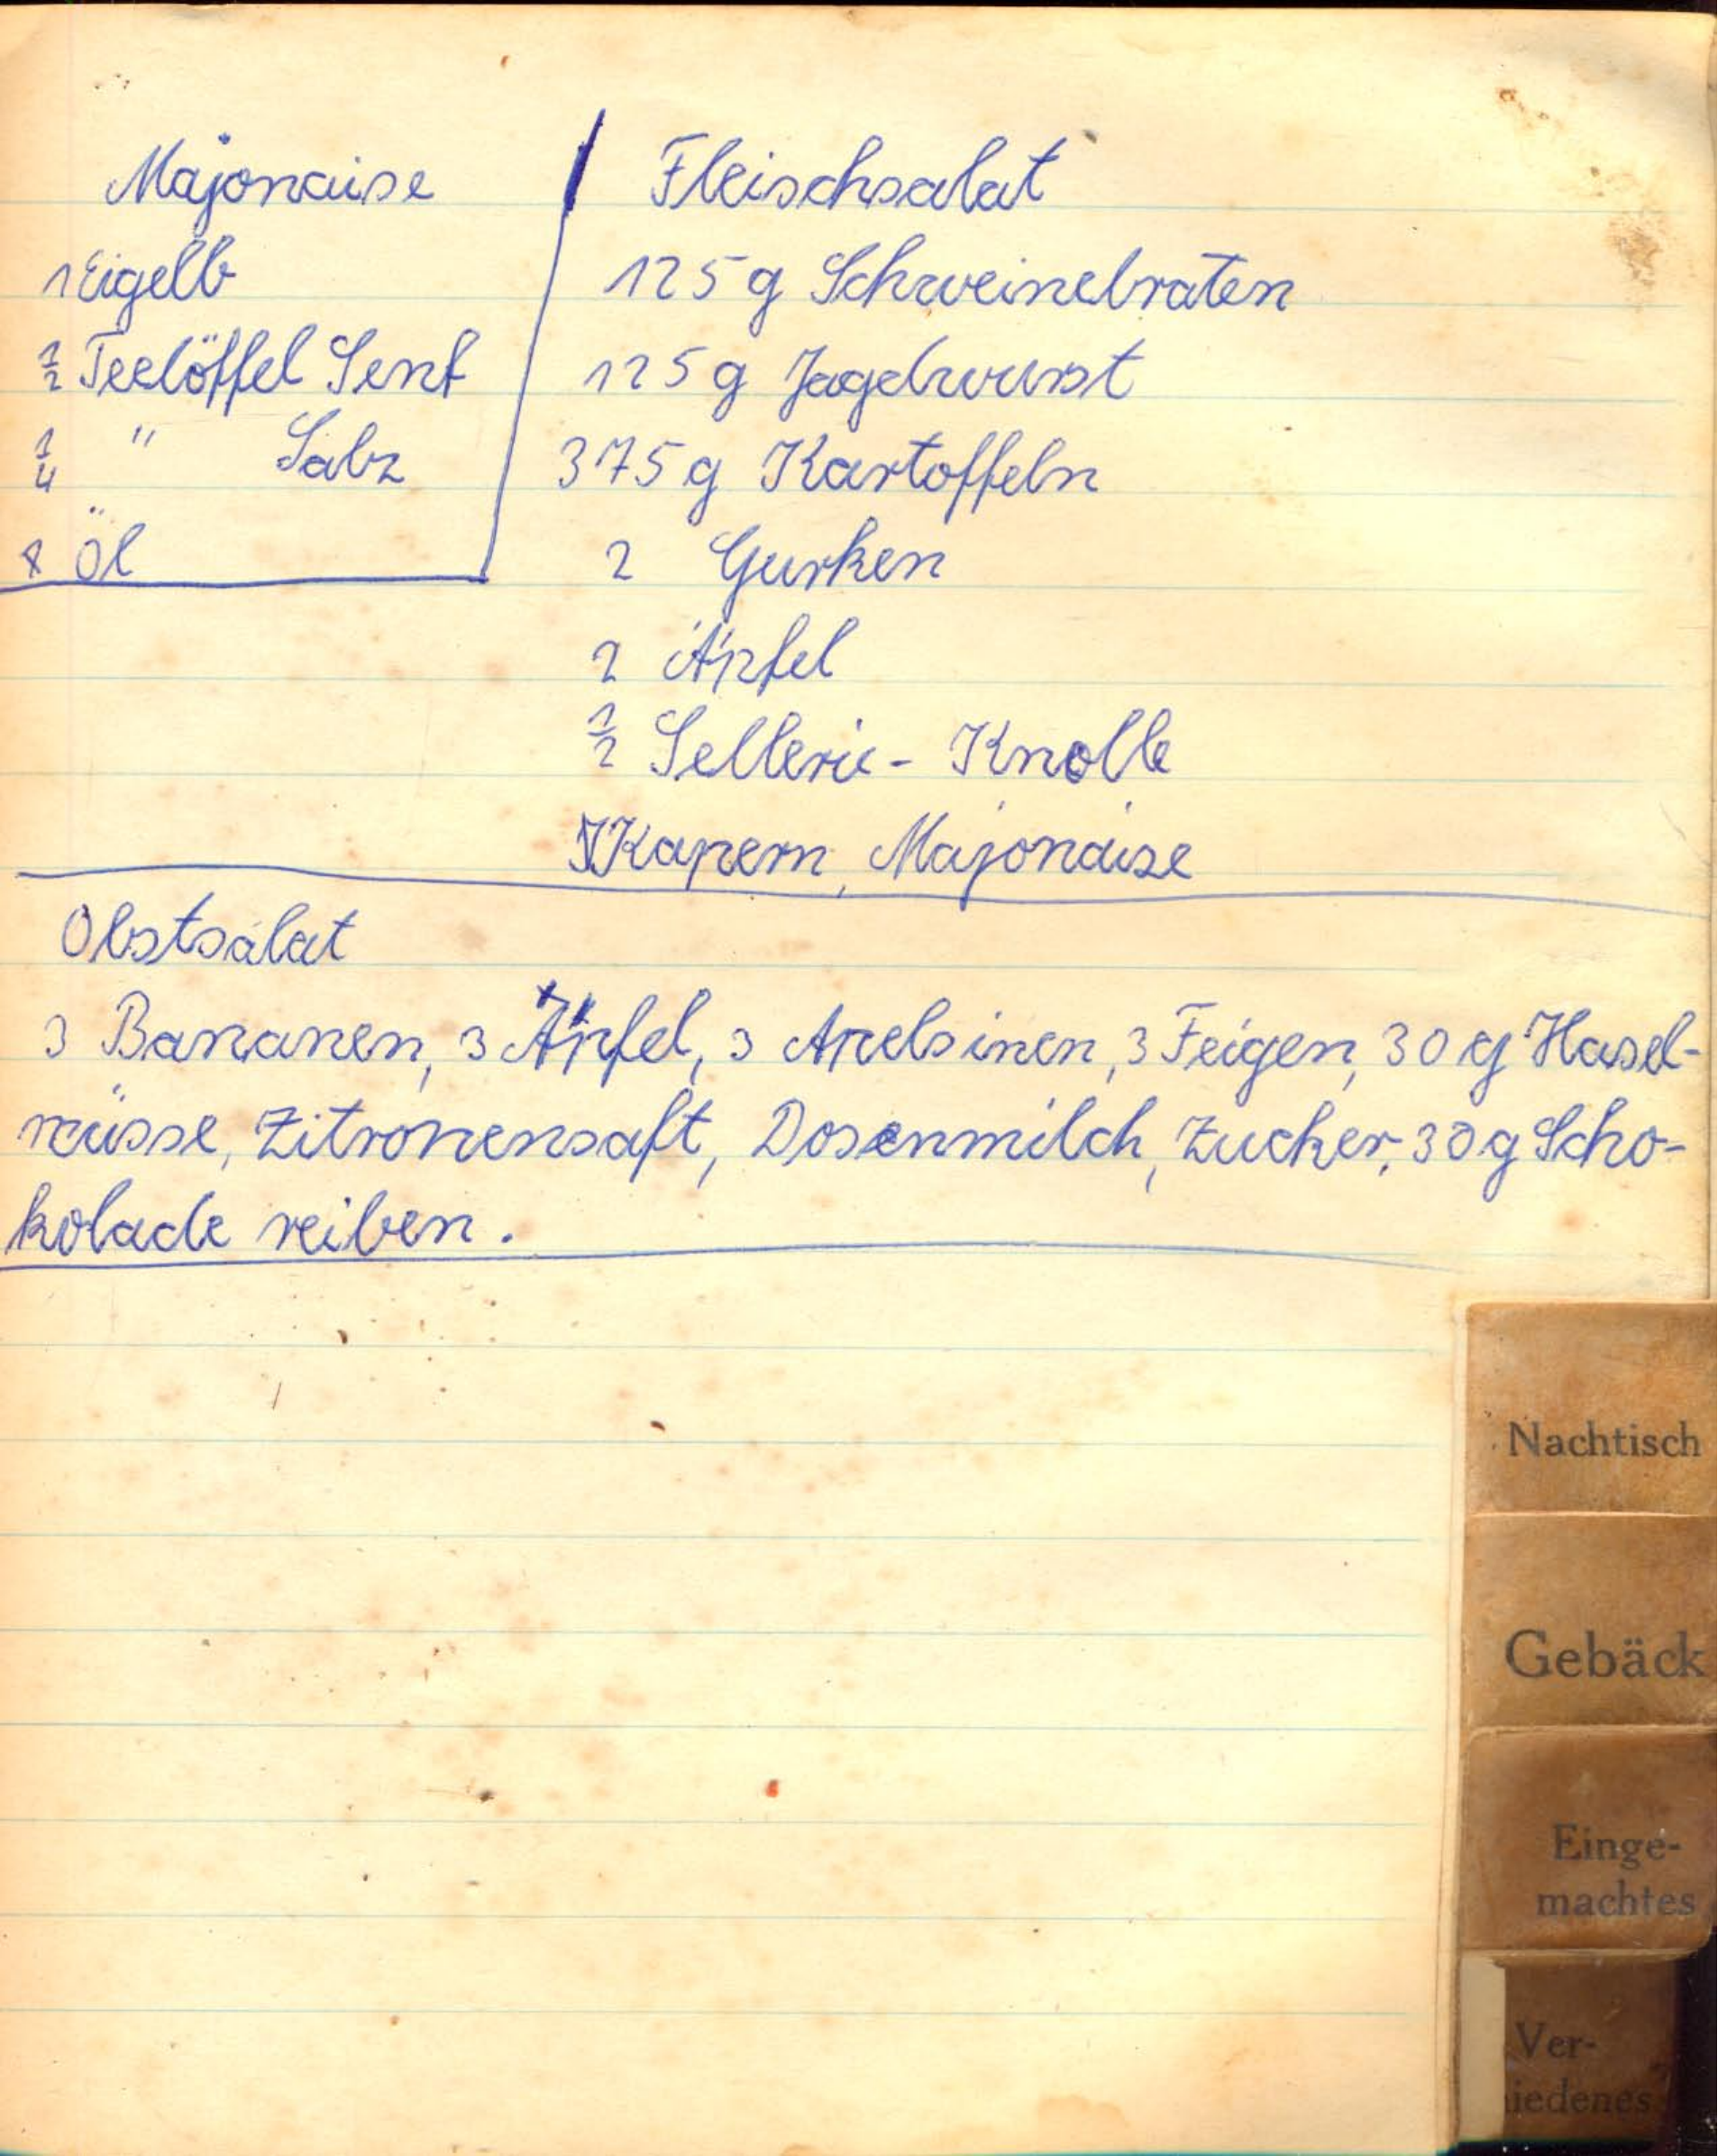 Majonaise
1 Eigelb
1/2 Teelöffel Senf
1/4 " Salz
Öl
Fleischsalat
125 g Schweinebraten
125 g Jagdwurst
375 g Kartoffeln
2 Gurken
2 Äpfel
1/2 Sellerie - Knolle
Kapern, Majonaise
Obstsalat
3 Bananen, 3 Äpfel, 3 Apelsinen, 3 Feigen, 30 g Hasel-
nüsse, Zitronensaft, Dosenmilch, Zucker, 30 g Scho-
kolade reiben.
Nachtisch
Gebäck
Einge-
machtes
Ver-
iedenes